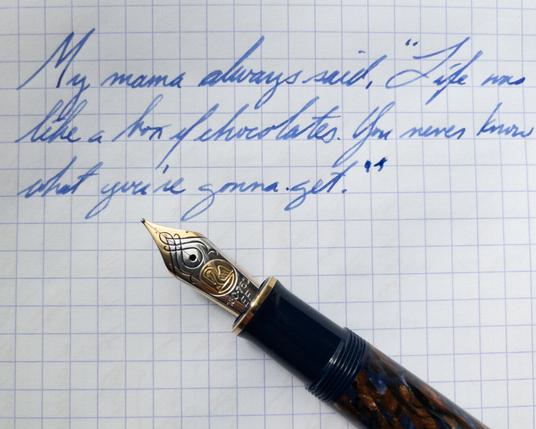 My mama always said, "Life was
like a box of chocolates. You never know
what you're gonna get."